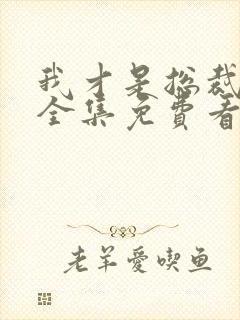 我才是总裁
全集免费看
老羊爱喫鱼